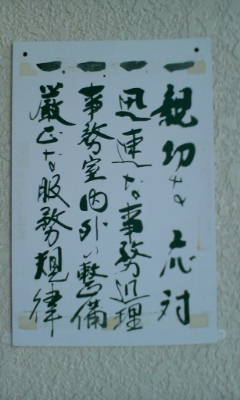 一 親切な応対
一 迅速な事務処理
一 事務室内外の整備
一 厳正な服務規律